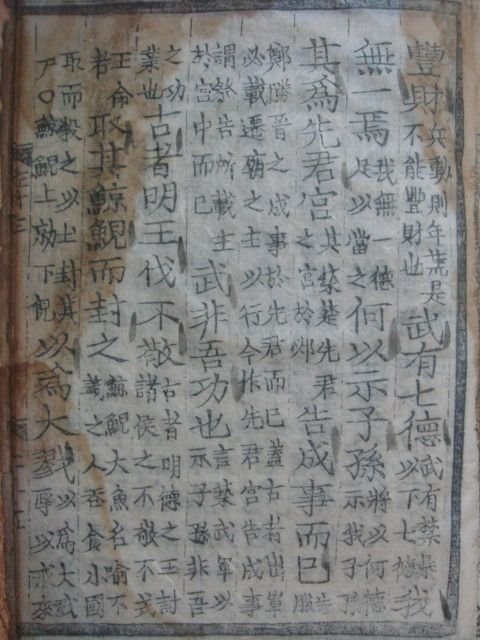 豐財兵動則年荒是不能豐財也武有七德武有禁暴以下七德我
無一焉我無一德足以當之何以示子孫將以何德示我子孫
其爲先君宮其築楚先君之宮於邲告成事而已告服
鄭勝晉之成事於先君而已蓋古者出軍必載遷廟之主以行今作先君宮告成事
謂祭告所載主於宮中而已武非吾功也言築武軍以示子孫非吾
之功業也古者明王伐不敬古者明德之王討諸侯之不敬不式
王命者取其鯨鯢而封之鯨鯢大魚名喻不義之人吞食小國
取而殺之以土封其尸○鯨鯢上勍下倪以爲大戮以爲大戮辱以戒來